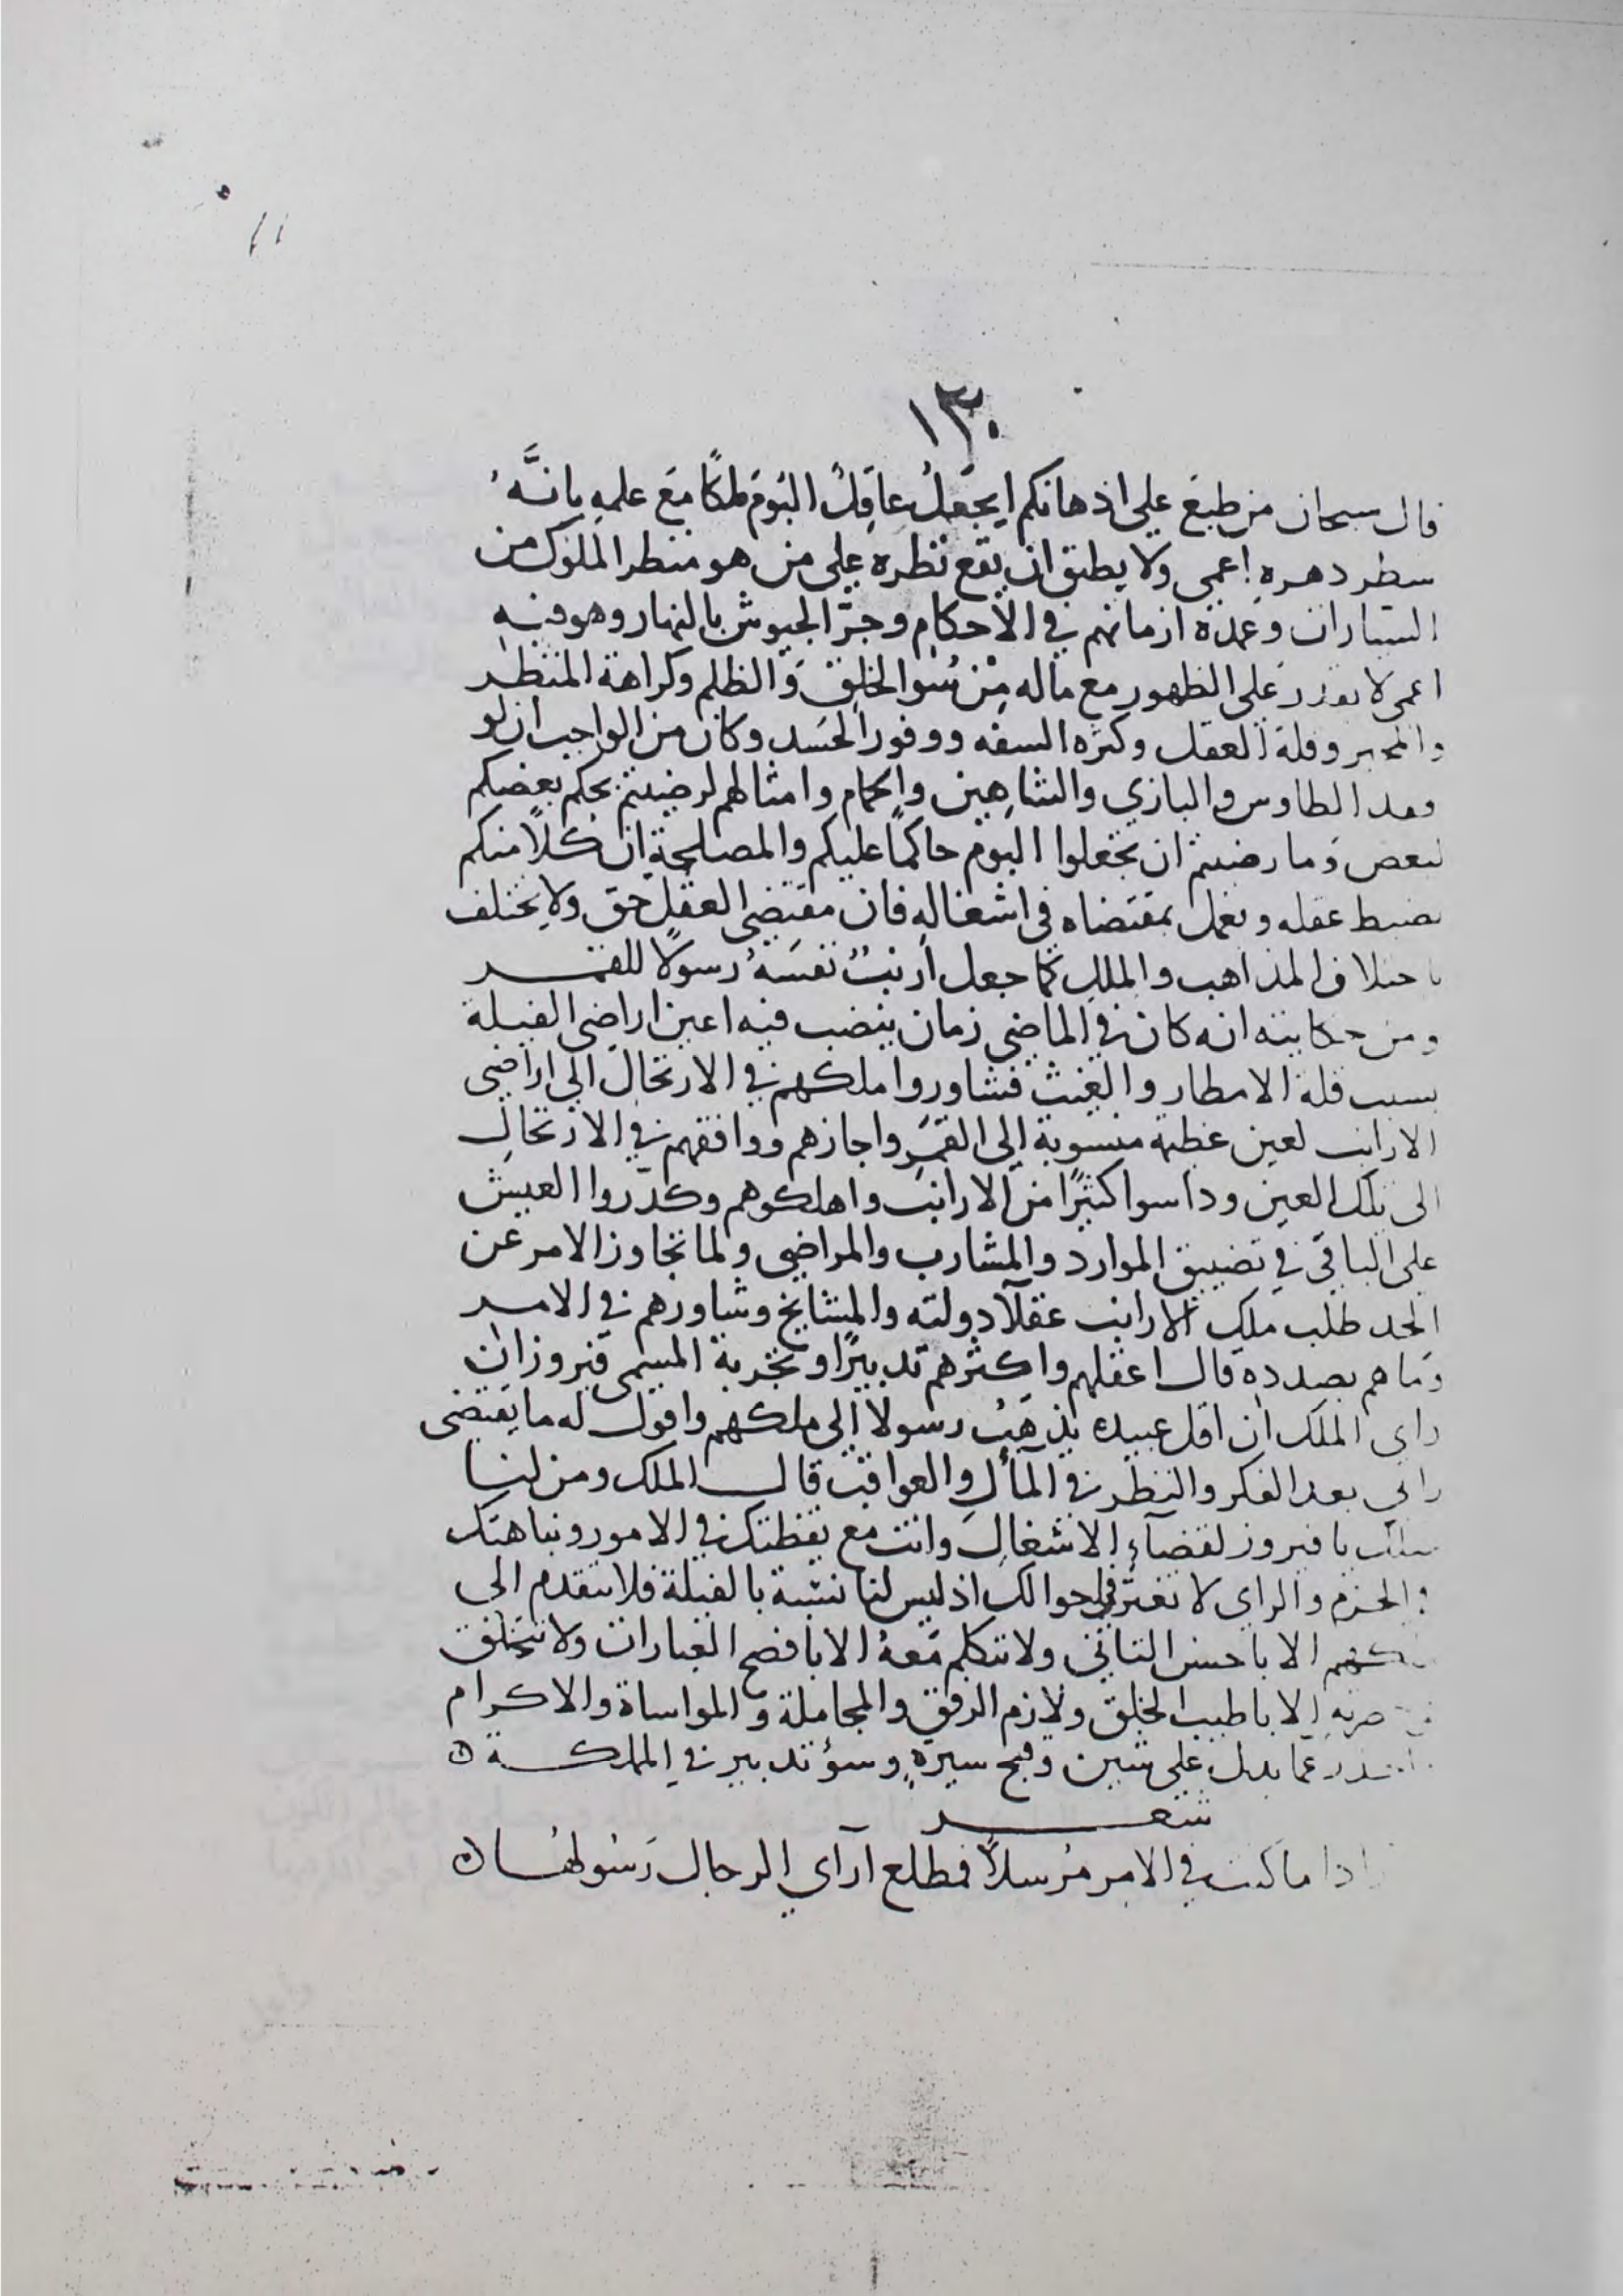 ١٣٠
قال سبحان من طبع على اذهانكم ايجعل عاقل البوم ملكا مع علمه بانَّهُ
سطر دهره اعمى ولا يطيق ان يقع نظره على من هو منظر الملوك من
السيارات وعمدة ازمانهم في الاحكام وجرّ الجيوش بالنهار وهو فيه
اعمى لا يقدر على الظهور مع ماله من سُوا الخلق والظلم وكراهة المنظر
والمخبر وقلة العقل وكثره السفه ووفور الحسد وكان من الواجب ان لو
فقد الطاوس والبازي والشاهين والحمام وامثالهم لرضيتم بحكم بعضكم
لبعض وما رضيتم ان تجعلوا البوم حاكمًا عليكم والمصلحة ان كلًا منكم
يضبط عقله ويعمل بمقتضاه في اشغاله فان مقتضى العقل حق ولا يختلف
باختلاف المذاهب والملل كما جعل ارنبٌ نفسَهُ رسولًا للقمر
ومن حكايته انه كان في الماضي زمان ينضب فيه اعين اراضي الفيلة
بسبب قلة الامطار والغيث فشاوروا ملكهم في الارتحال الى اراضي
الارانب لعين عظيمة منسوبة إلى القمر واجازهم ووافقهم في الارتحال
الى تلك العين وداسوا كثيرًا من الارانب واهلكوهم وكدّروا العيش
على الباقي في تضييق الموارد والمشارب والمراضي ولما تجاوز الامر عن
الحد طلب ملك الارانب عقلآ دولته والمشايخ وشاورهم في الامر
وما هم بصدده قال اعقلهم واكثرهم تدبيرًا وتجربة المسمى فيروز ان
راى الملك ان اقل عبيده يذهب رسولا إلى ملكهم واقول له ما يقتضى
رايي بعد الفكر والنظر في المآل والعواقب قال الملك ومن لنا
مثلك يا فيروز لقضآء الاشغال وانت مع يقظتك في الامور ونباهتك
في الحزم والراى لا تغتر في احوالك اذ ليس لنا نسبة بالفيلة فلا تتقدم الى
ملكهم الا باحسن التاني ولا تتكلم معهُ الا بافصح العبارات ولا تتخلق
إلا باطيب الخلق ولازم الرفق والمجاملة والمواساة والاكرام
عما يدل على شين وقبح سيرةٍ وسؤ تدبير في المملكة
شعر
اذا ما كنت في الامر مُرسلًا فمطلع آراي الرجال رَسُولها